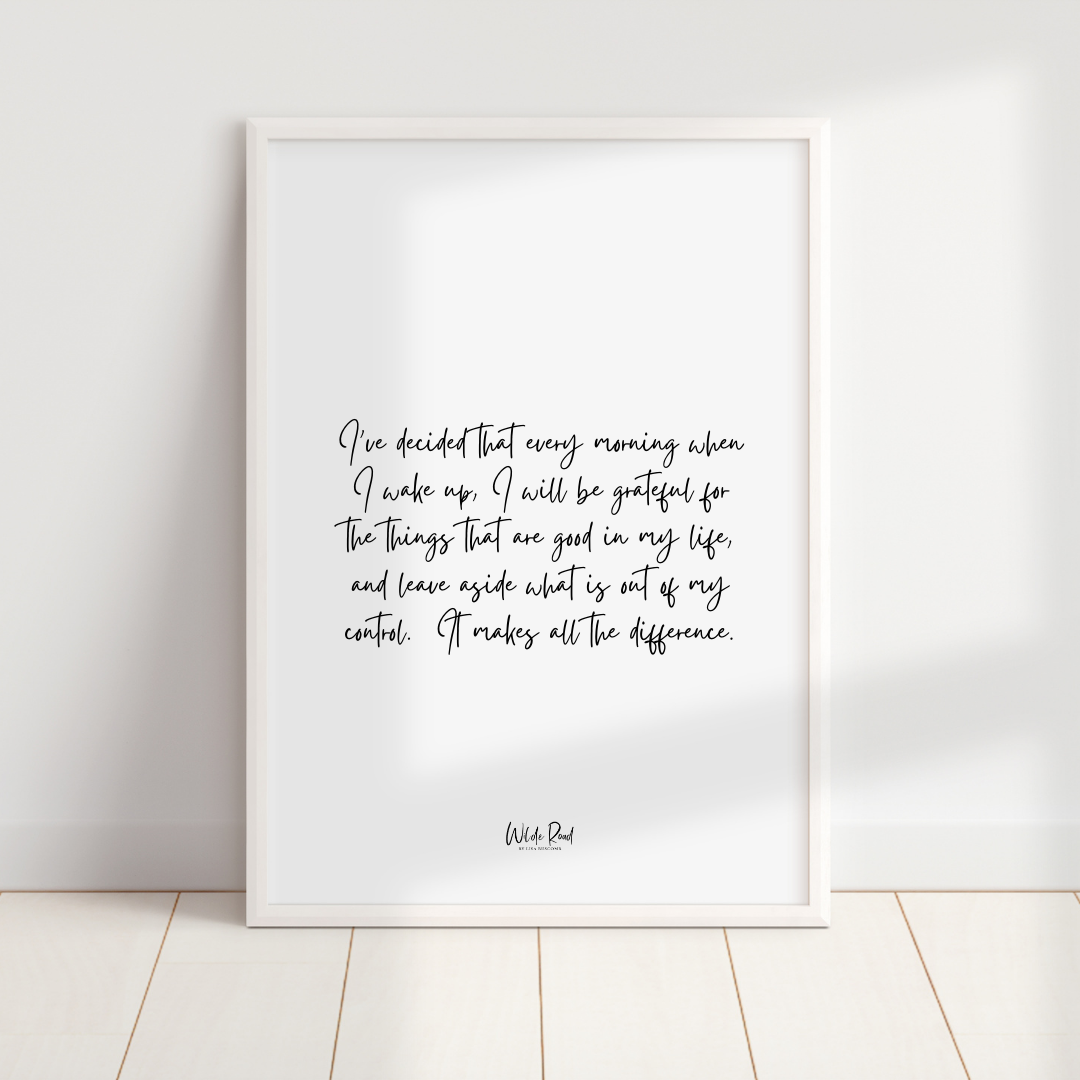 I've decided that every morning when
I wake up, I will be grateful for
the things that are good in my life,
and leave aside what is out of my
control. It makes all the difference.
Wilde Road
BY LISA BUSCOMB